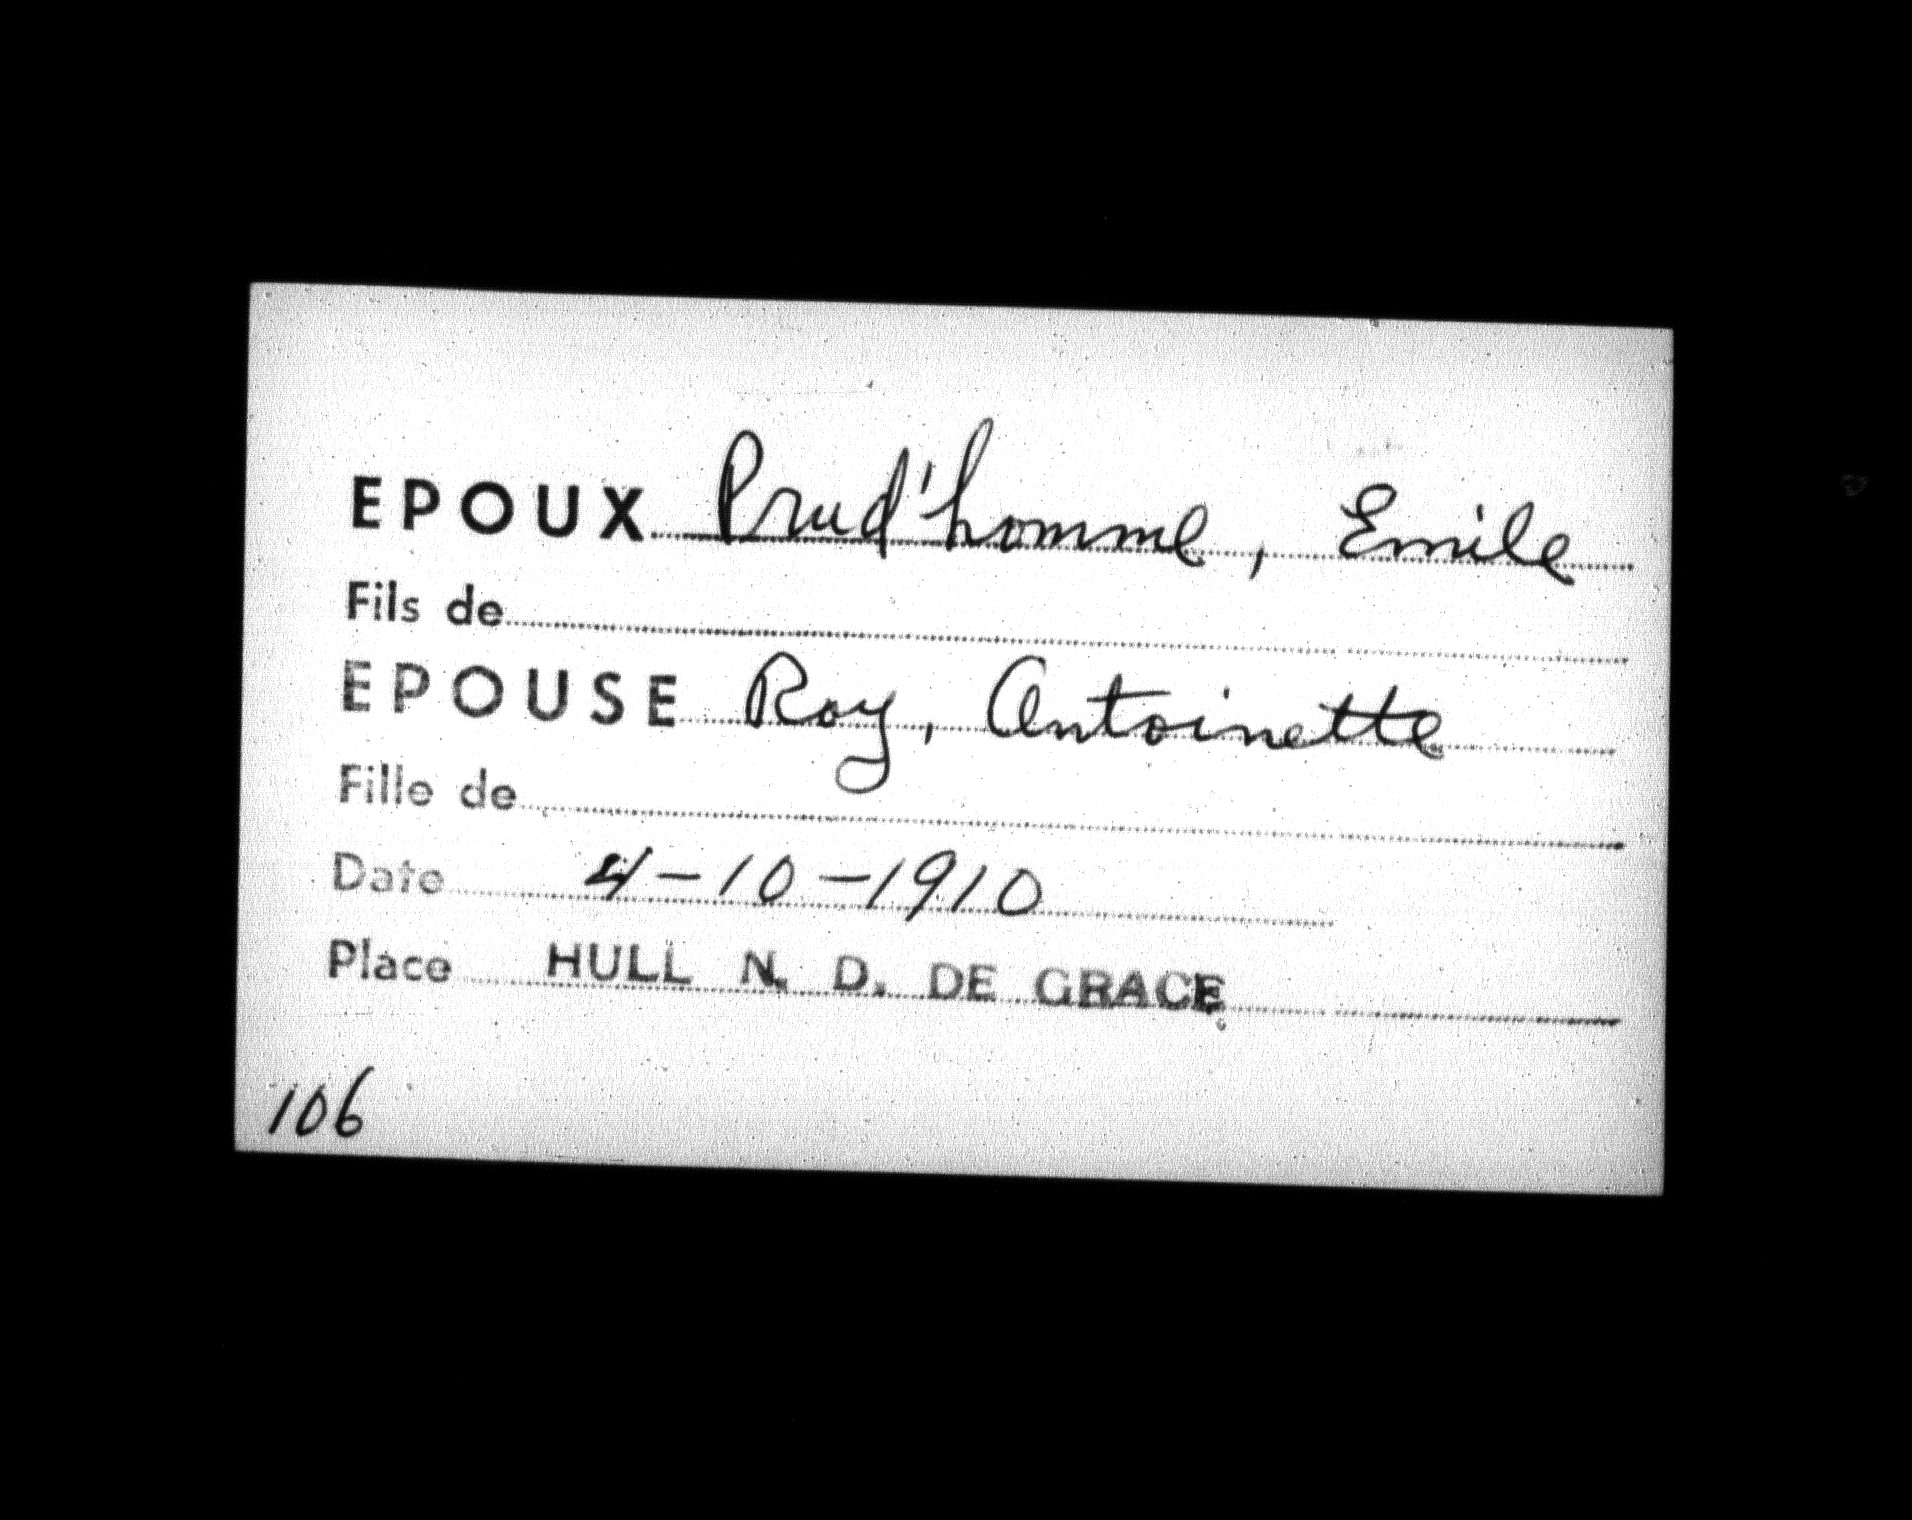 EPOUX Prud'homme, Emile
Fils de
EPOUSE Roy, Antoinette
Fille de
Date 4-10-1910
Place HULL N. D. DE GRACE
106